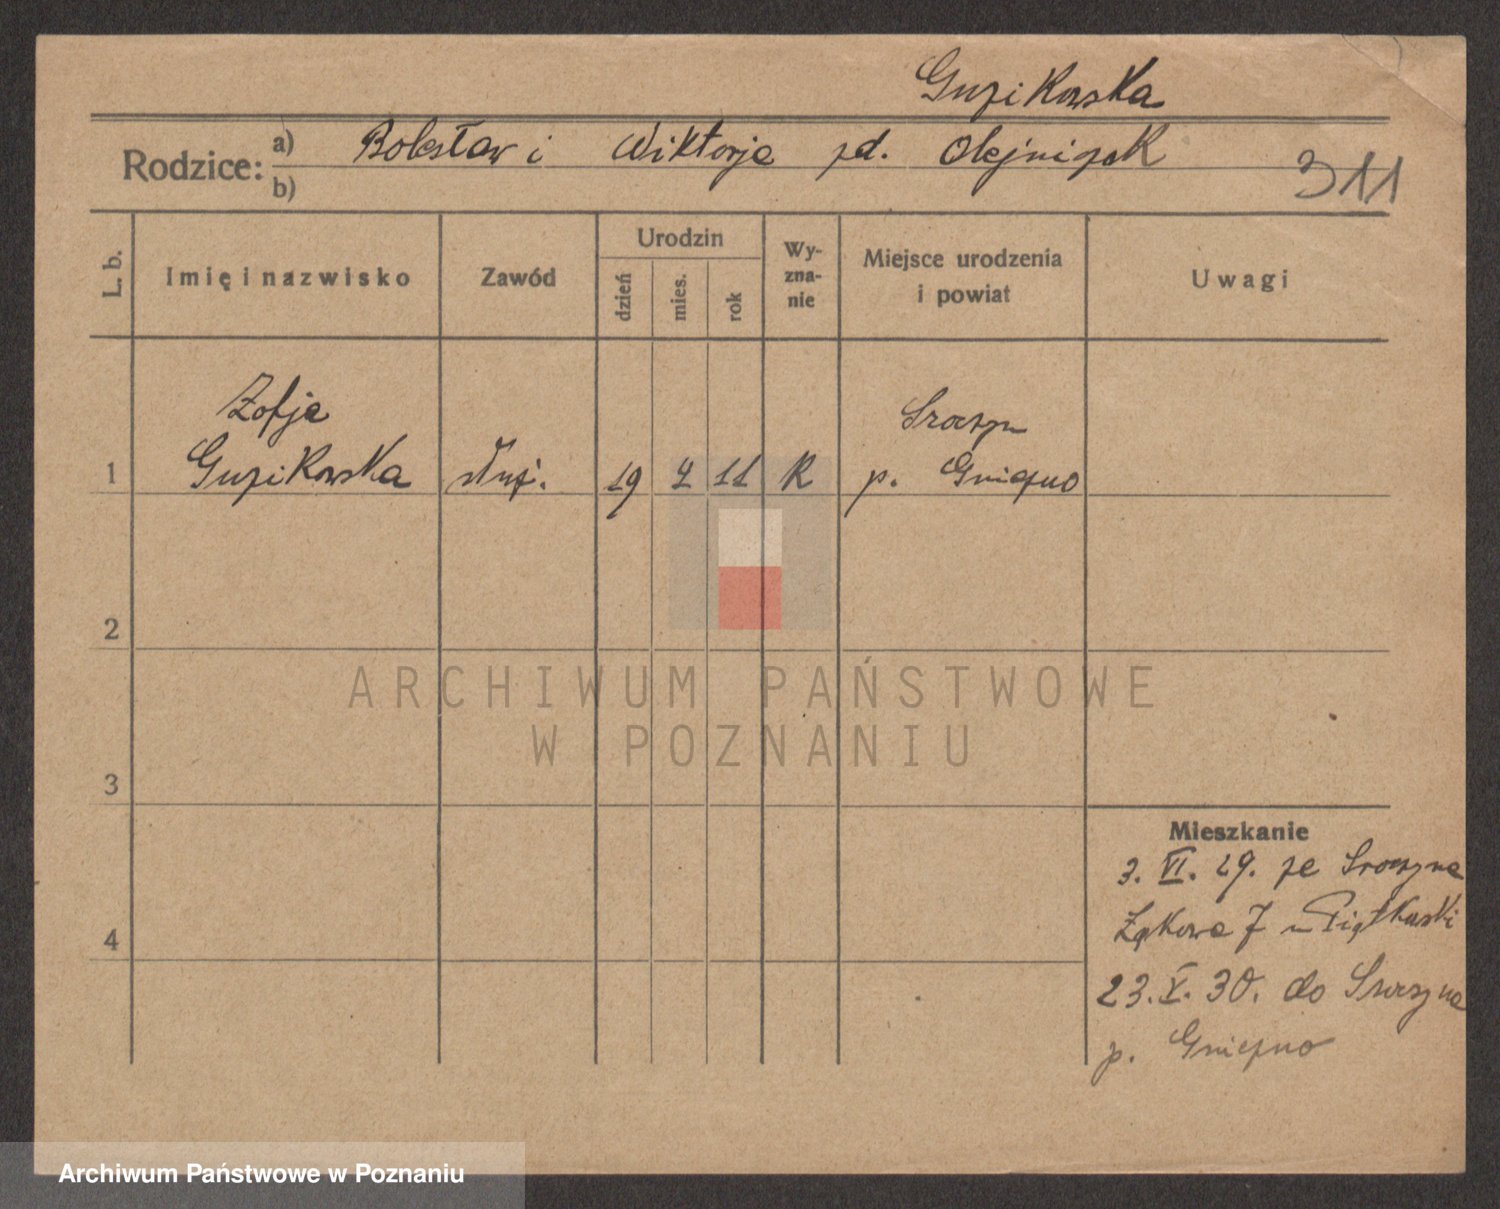 Guzikowska
Rodzice: a) Bolesław i Wiktorja zd. Olejniczak
b)
311
L. b. Imię i nazwisko Zawód Urodzin dzień mies. rok Wy-zna-nie Miejsce urodzenia i powiat Uwagi
Zofja Sroczyn
1 Guzikowska służ. 19 4 11 K p. Gniezno
2
ARCHIWUM PAŃSTWOWE
W POZNANIU
3
Mieszkanie
3. VI. 29. ze Sroczyna
Łąkowa 7 u Piątkowski
4
23. V. 30. do Sroczyna
p. Gniezno
Archiwum Państwowe w Poznaniu